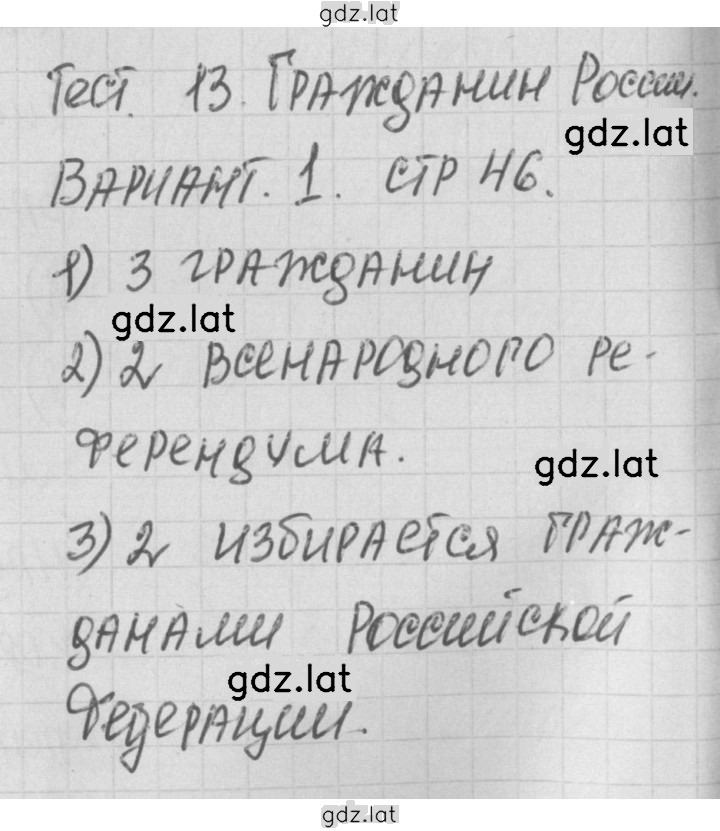 gdz.lat
Тест. 13. Гражданин России.
gdz.lat
Вариант. 1. стр 46.
1) 3 гражданин
gdz.lat
2) 2 всенародного ре-
ферендума.
gdz.lat
3) 2 избирается граж-
данами Российской
gdz.lat
Федерации.
gdz.lat